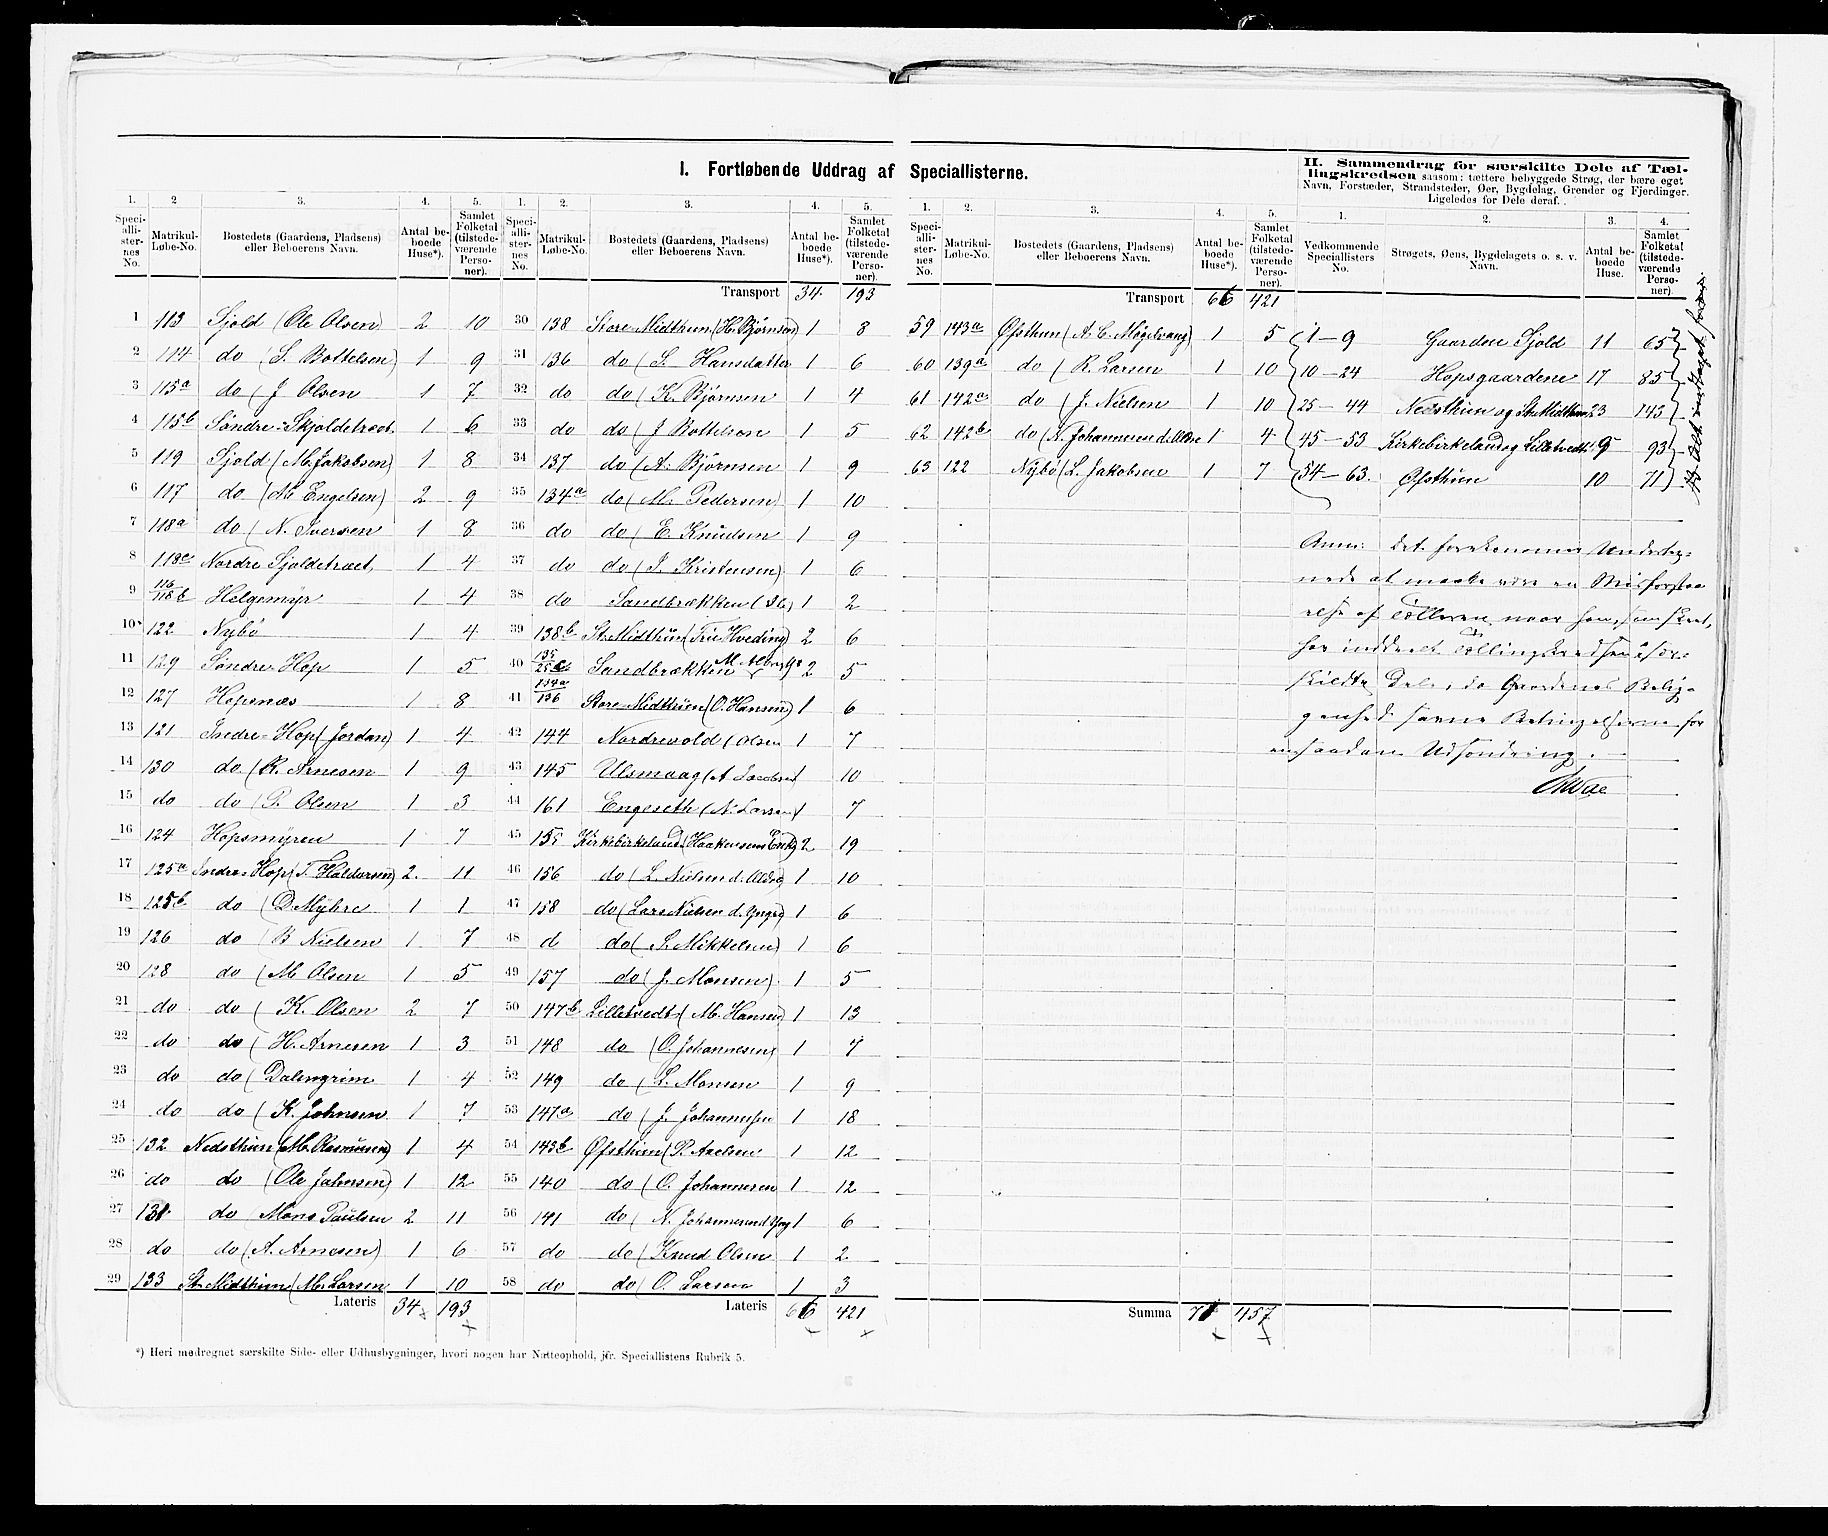 I. Fortløbende Uddrag af Speciallisterne.
1. 2 3. 4. 5.
Speciallisternes No. Matrikul-Løbe-No. Bostedets (Gaardens, Pladsens) eller Beboerens Navn. Antal beboede Huse*). Samlet Folketal (tilstedeværende Personer).
1 113 Sjold (Ole Olsen) 2 10
2 114 do (S. Bottelsen) 1 9
3 115a do (J Olsen 1 7
4 115b Søndre-Skjoldetræet 1 6
5 119 Sjold (M. Jakobsen) 1 8
6 117 do (M. Engelsen) 2 9
7 118a do (N. Iversen 1 8
8 118c Nordre Sjoldetræet 1 4
9 116/118b Helgemyr 1 4
10 122 Nybø 1 4
11 129 Søndre-Hop 1 5
12 127 Hopsnæs 1 8
13 121 Indre-Hop (Jordan) 1 4
14 130 do (R. Arnesen 1 9
15 do do (P. Olsen 1 3
16 124 Hopsmyren 1 7
17 125a Indre-Hop (T. Haldorsen) 2. 11
18 125b do (D. Myhre 1 1
19 126 do (B Nielsen 1 7
20 128 do (M Olsen 1 5
21 do do (K. Olsen 2 7
22 do do (H. Arnesen 1 3
23 do do (Dalengrim 1 4
24 do do (K. Johnsen 1 7
25 132 Nedsthun (M. Rasmussen) 1 4
26 do do (Ole Johnsen) 1 12
27 131 do (Mons Paulsen 2 11
28 do do (A. Arnesen) 1 6
29 133 St. Midthun (M. Larsen 1 10
Lateris 34 193
*) Heri medregnet særskilte Side- eller Udhusbygninger, hvori nogen har Natteophold, jfr. Speciallistens Rubrik 5.
1. 2. 3. 4. 5.
Speciallisternes No. Matrikul-Løbe-No. Bostedets (Gaardens, Pladsens) eller Beboerens Navn. Antal beboede Huse*). Samlet Folketal (tilstedeværende Personer).
Transport 34. 193
30 138 Store-Midthun (H. Bjørnsen) 1 8
31 136 do (S. Hansdatter 1 6
32 do do (K. Bjørnsen 1 4
33 do do (J Bottelsen 1 5
34 137 do (A. Bjørnsen 1 9
35 134a do (M. Pedersen) 1 10
36 do do (E. Knudsen 1 9
37 do do (J. Kristensen) 1 6
38 do Sandbrækken 1 2
39 138b St. Midthun (Hveding) 2 6
40 135 Sandbrækken 2 5
41 134a/136 Store-Midthun (O. Hansen) 1 6
42 144 Nordrevold (Olsen 1 7
43 145 Ulsmaag (A Jacobsen 1 10
44 161 Engeseth (N. Larsen 1 7
45 155 Kirkebirkeland (Haakensens Enke) 2 19
46 156 do (L. Nielsen d. Ældre 1 10
47 158 do (Lars Nielsen d. Yngre) 1 6
48 d do (S. Mikkelsen) 1 6
49 157 do (J. Monsen) 1 5
50 147b Lilletvedt (M. Hansen) 1 13
51 148 do (O. Johannesen) 1 7
52 149 do (L. Monsen 1 9
53 147a do (J. Johannessen 1 18
54 143b Øfsthun (P. Axelsen 1 12
55 140 do (O. Johannesen 1 12
56 141 do (N. Johannesen d Yng 1 6
57 do do (Knud Olsen 1 2
58 do do (O. Larsen 1 3
Lateris 66 421
1. 2. 3. 4. 5.
Speciallisternes No. Matrikul-Løbe-No. Bostedets (Gaardens, Pladsens) eller Beboerens Navn. Antal beboede Huse*). Samlet Folketal (tilstedeværende Personer).
Transport 66 421
59 143a Øfsthun (A. C. Møgelvang) 1 5
60 139a do (R. Larsen 1 10
61 142a do (J. Nielsen 1 10
62 142b do (N. Johannesen d. Ældre 1 4
63 122 Nybø (L. Jakobsen 1 7
Summa 71 457
II. Sammendrag for særskilte Dele af Tællingskredsen saasom: tættere bebyggede Strøg, der bære eget
Navn, Forstæder, Strandsteder, Øer, Bygdelag, Grender og Fjerdinger.
Ligeledes for Dele deraf.
1. 2. 3. 4.
Vedkommende Speciallisters No. Strøgets, Øens, Bygdelagets o. s. v. Navn. Antal beboede Huse. Samlet Folketal (tilstedeværende Personer).
1-9 Gaarden Sjold 11 65
10-24 Hopsgaardene 17 85
25-44 Nedsthun og St. Midthun 23 143
45-53 Kirkebirkeland og Lilletvedt 9 93
54-63. Øfsthun 10 71
Anm: Det forekommer Underteg-
nede at maatte være en Misforstaa-
else af Tælleren naar han, som skeet,
har inddeelt Tællingskredsen i sær-
skildte Dele, da Gaardenes Belig-
genhed savne Betingelserne for
en saadan Udsondring.